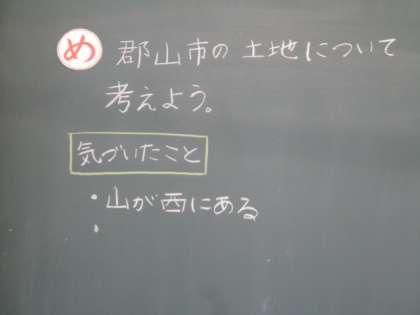 め 郡山市の土地について
考えよう。
気づいたこと
・山が西にある
・